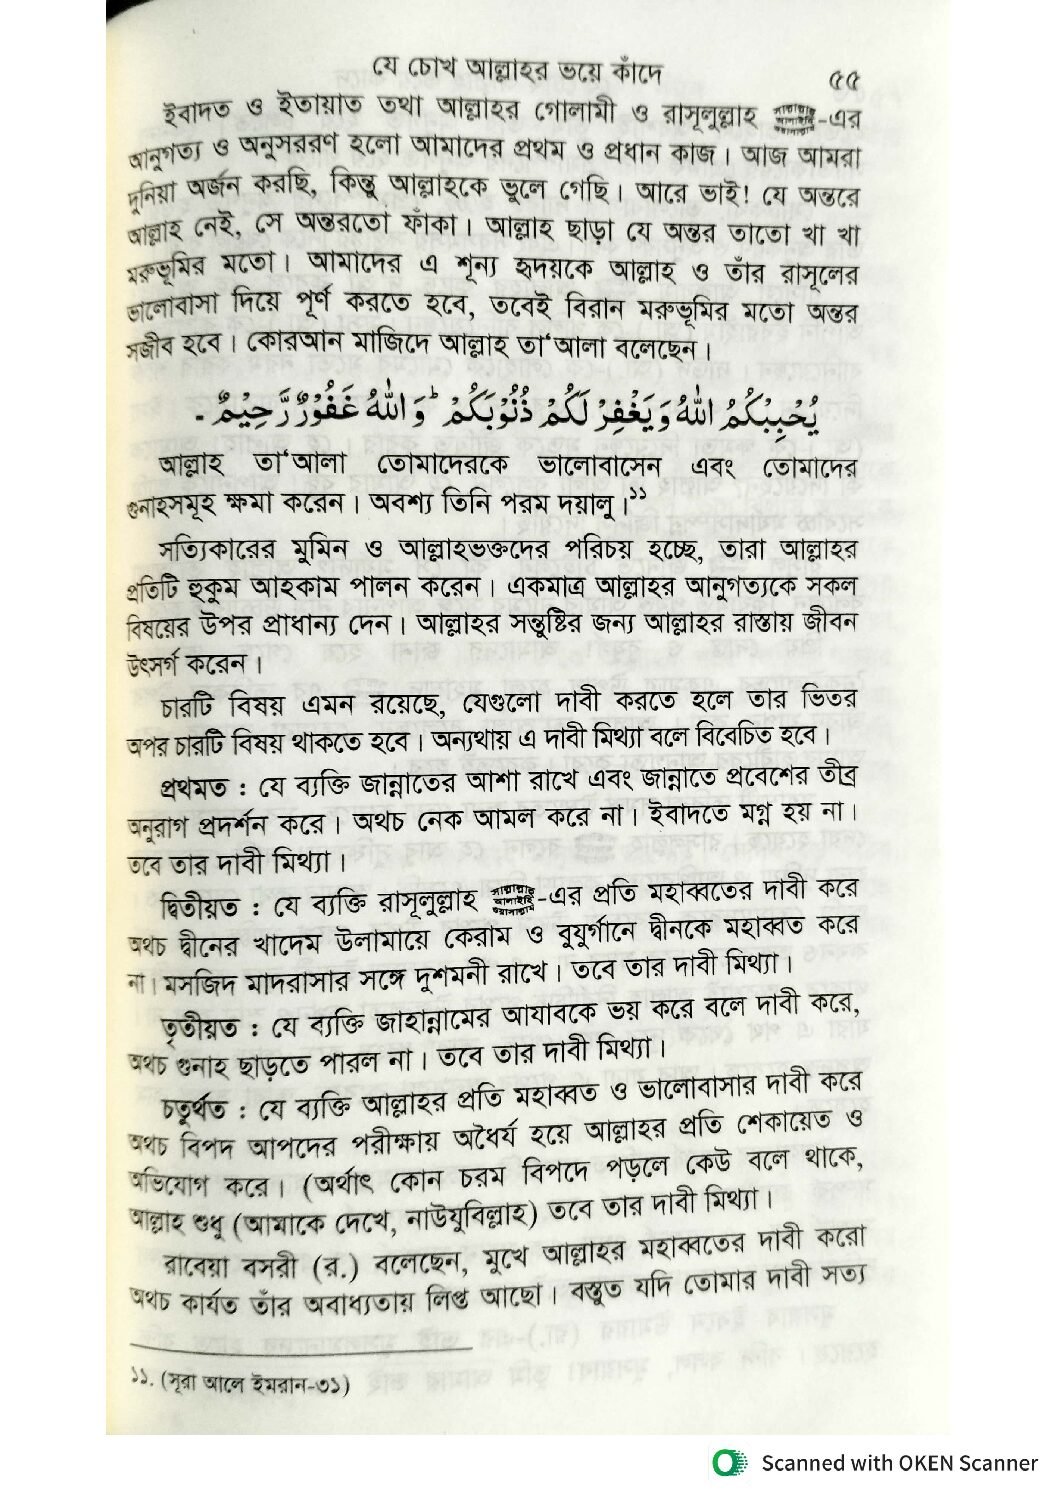 যে চোখ আল্লাহর ভয়ে কাঁদে ৫৫
ইবাদত ও ইতায়াত তথা আল্লাহর গোলামী ও রাসূলুল্লাহ সাল্লাল্লাহু আলাইহি ওয়াসাল্লাম-এর
আনুগত্য ও অনুসররণ হলো আমাদের প্রথম ও প্রধান কাজ। আজ আমরা
দুনিয়া অর্জন করছি, কিন্তু আল্লাহকে ভুলে গেছি। আরে ভাই! যে অন্তরে
আল্লাহ নেই, সে অন্তরতো ফাঁকা। আল্লাহ ছাড়া যে অন্তর তাতো খা খা
মরুভূমির মতো। আমাদের এ শূন্য হৃদয়কে আল্লাহ ও তাঁর রাসূলের
ভালোবাসা দিয়ে পূর্ণ করতে হবে, তবেই বিরান মরুভূমির মতো অন্তর
সজীব হবে। কোরআন মাজিদে আল্লাহ তা'আলা বলেছেন।
يُحْبِبْكُمُ اللهُ وَيَغْفِرْ لَكُمْ ذُنُوْبَكُمْ ؕ وَاللهُ غَفُوْرٌ رَّحِيْمٌ ۔
আল্লাহ তা'আলা তোমাদেরকে ভালোবাসেন এবং তোমাদের
গুনাহসমূহ ক্ষমা করেন। অবশ্য তিনি পরম দয়ালু।১১
সত্যিকারের মুমিন ও আল্লাহভক্তদের পরিচয় হচ্ছে, তারা আল্লাহর
প্রতিটি হুকুম আহকাম পালন করেন। একমাত্র আল্লাহর আনুগত্যকে সকল
বিষয়ের উপর প্রাধান্য দেন। আল্লাহর সন্তুষ্টির জন্য আল্লাহর রাস্তায় জীবন
উৎসর্গ করেন।
চারটি বিষয় এমন রয়েছে, যেগুলো দাবী করতে হলে তার ভিতর
অপর চারটি বিষয় থাকতে হবে। অন্যথায় এ দাবী মিথ্যা বলে বিবেচিত হবে।
প্রথমত : যে ব্যক্তি জান্নাতের আশা রাখে এবং জান্নাতে প্রবেশের তীব্র
অনুরাগ প্রদর্শন করে। অথচ নেক আমল করে না। ইবাদতে মগ্ন হয় না।
তবে তার দাবী মিথ্যা।
দ্বিতীয়ত : যে ব্যক্তি রাসূলুল্লাহ সাল্লাল্লাহু আলাইহি ওয়াসাল্লাম-এর প্রতি মহাব্বতের দাবী করে
অথচ দ্বীনের খাদেম উলামায়ে কেরাম ও বুযুর্গানে দ্বীনকে মহাব্বত করে
না। মসজিদ মাদরাসার সঙ্গে দুশমনী রাখে। তবে তার দাবী মিথ্যা।
তৃতীয়ত : যে ব্যক্তি জাহান্নামের আযাবকে ভয় করে বলে দাবী করে,
অথচ গুনাহ ছাড়তে পারল না। তবে তার দাবী মিথ্যা।
চতুর্থত : যে ব্যক্তি আল্লাহর প্রতি মহাব্বত ও ভালোবাসার দাবী করে
অথচ বিপদ আপদের পরীক্ষায় অধৈর্য হয়ে আল্লাহর প্রতি শেকায়েত ও
অভিযোগ করে। (অর্থাৎ কোন চরম বিপদে পড়লে কেউ বলে থাকে,
আল্লাহ শুধু (আমাকে দেখে, নাউযুবিল্লাহ) তবে তার দাবী মিথ্যা।
রাবেয়া বসরী (র.) বলেছেন, মুখে আল্লাহর মহাব্বতের দাবী করো
অথচ কার্যত তাঁর অবাধ্যতায় লিপ্ত আছো। বস্তুত যদি তোমার দাবী সত্য
১১. (সূরা আলে ইমরান-৩১)
Scanned with OKEN Scanner